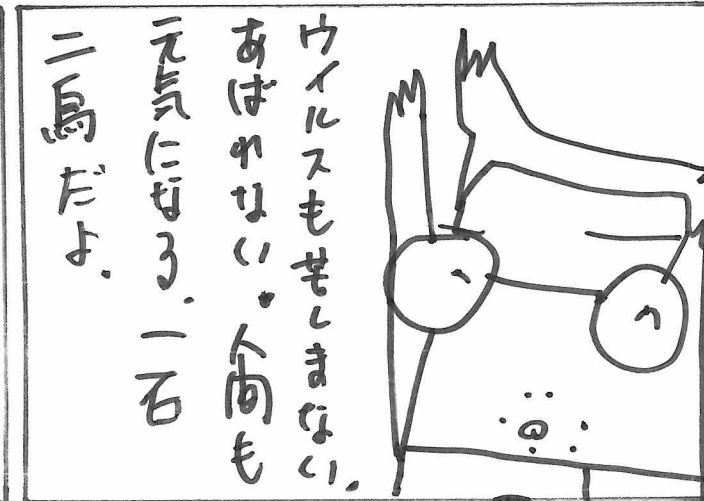 ウイルスも苦しまない.
あばれない。人間も
元気になる.一石
二鳥だよ.